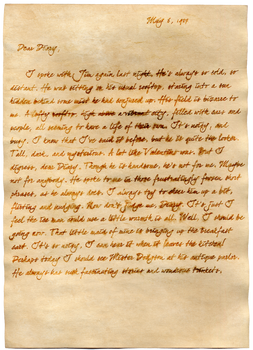 May 6, 1909
Dear Diary,
I spoke with Jim again last night. He's always so cold, so
distant. He was sitting on his usual rooftop, staring into a one
hidden behind some mist he had conjured up. His field is bizarre to
me. A rooftop high over a city, filled with cars and
people, all seeming to have a life of their own. It's noisy, and
busy. I know that I've said it before, but he is quite the looker.
Tall, dark, and mysterious. A bit like Valentine was. But I
digress, dear Diary. Though he is handsome, he's not for me. Maybe
not for anybody. He spoke to me in those frustratingly frozen short
phrases, as he always does. I always try to cheer him up a bit,
flirting and nudging. Now don't judge me, Diary. It's just I
feel the too man could use a little warmth is all. Well, I should be
going now. That little maid of mine is bringing up the breakfast
cart. It's so noisy, I can hear it when it leaves the kitchen!
Perhaps today I should see Mister Dodgson at his antique parlor.
He always has such fascinating stories and wondrous trinkets.